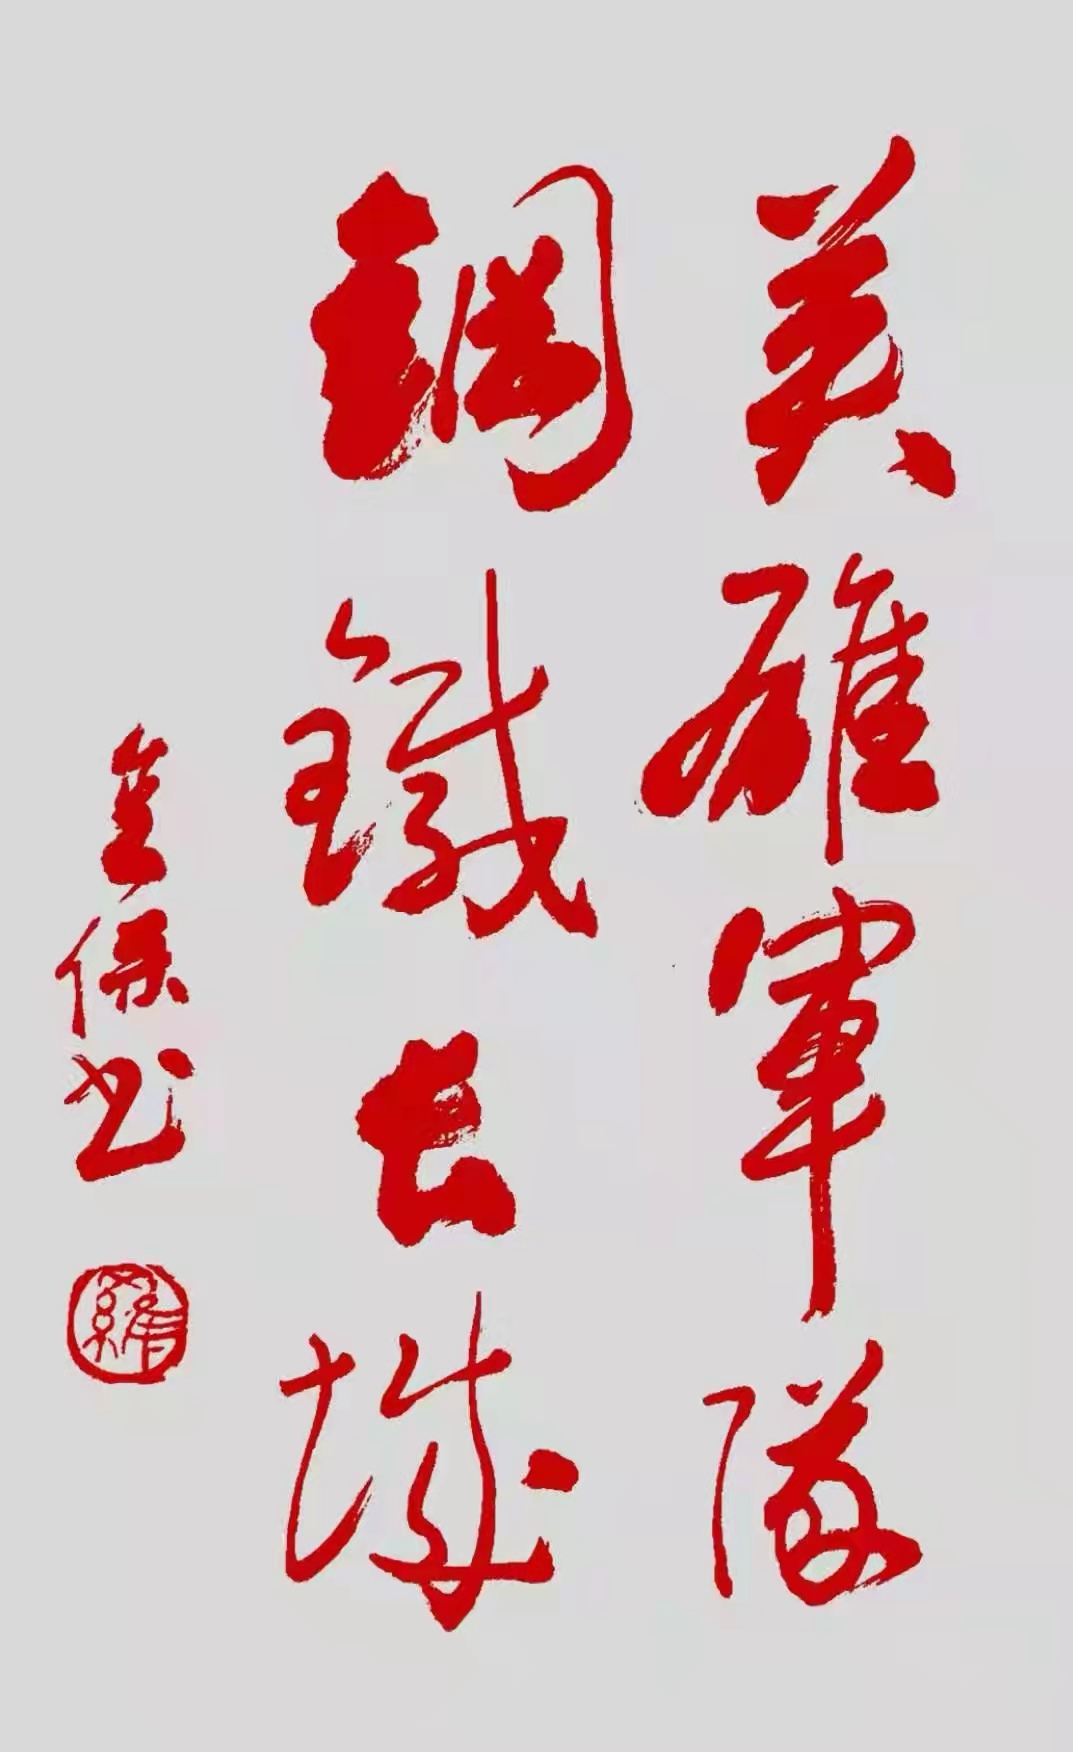 英雄軍隊
鋼鐵長城
金保书